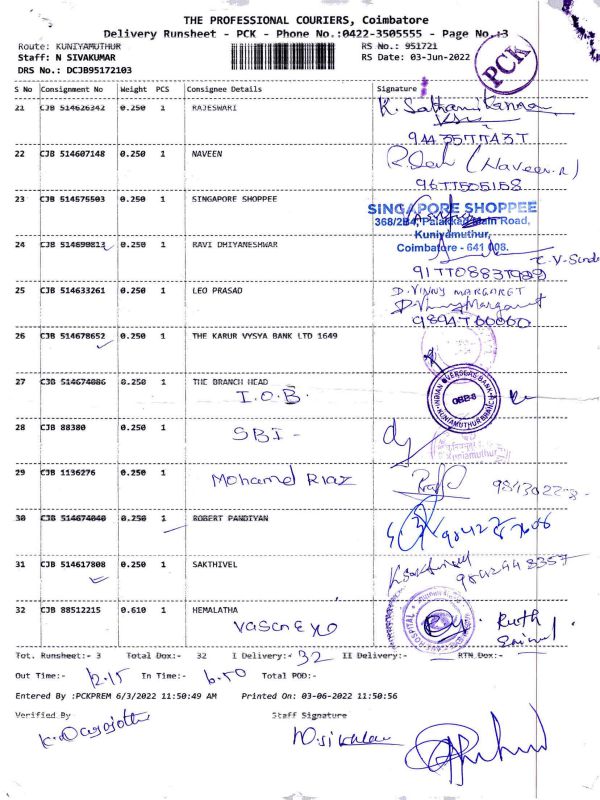 THE PROFESSIONAL COURIERS, Coimbatore
Delivery Runsheet - PCK - Phone No.:0422-3505555 - Page No.:3
Route: KUNIYAMUTHUR RS No.: 951721
Staff: N SIVAKUMAR RS Date: 03-Jun-2022
DRS No.: DCJB95172103
PCK
S No Consignment No Weight PCS Consignee Details Signature
21 CJB 514626342 0.250 1 RAJESWARI
22 CJB 514607148 0.250 1 NAVEEN
(Naveen.R)
9677505158
23 CJB 514575503 0.250 1 SINGAPORE SHOPPEE
SINGAPORE SHOPPEE
368/2B4, Palakkad Main Road,
Kuniyamuthur,
Coimbatore - 641 008.
24 CJB 514690813 0.250 1 RAVI DHIYANESHWAR
25 CJB 514633261 0.250 1 LEO PRASAD
D.VINNY MARGARET
D.Vinny Margaret
9894760060
26 CJB 514678652 0.250 1 THE KARUR VYSYA BANK LTD 1649
27 CJB 514674086 0.250 1 THE BRANCH HEAD
I.O.B.
INDIAN OVERSEAS BANK
KUNIYAMUTHUR BRANCH
28 CJB 88380 0.250 1
SBI -
Kuniamuthur
29 CJB 1136276 0.250 1
Mohamed Riaz
30 CJB 514674040 0.250 1 ROBERT PANDIYAN
31 CJB 514617808 0.250 1 SAKTHIVEL
K.Sakthivel
32 CJB 88512215 0.610 1 HEMALATHA
Vasan Eye
HOSPITAL
Ruth
Tot. Runsheet:- 3 Total Dox:- 32 I Delivery:- 32 II Delivery:- RTN Dox:-
Out Time:- 12.15 In Time:- 6.50 Total POD:-
Entered By :PCKPREM 6/3/2022 11:50:49 AM Printed On: 03-06-2022 11:50:56
Verified By Staff Signature